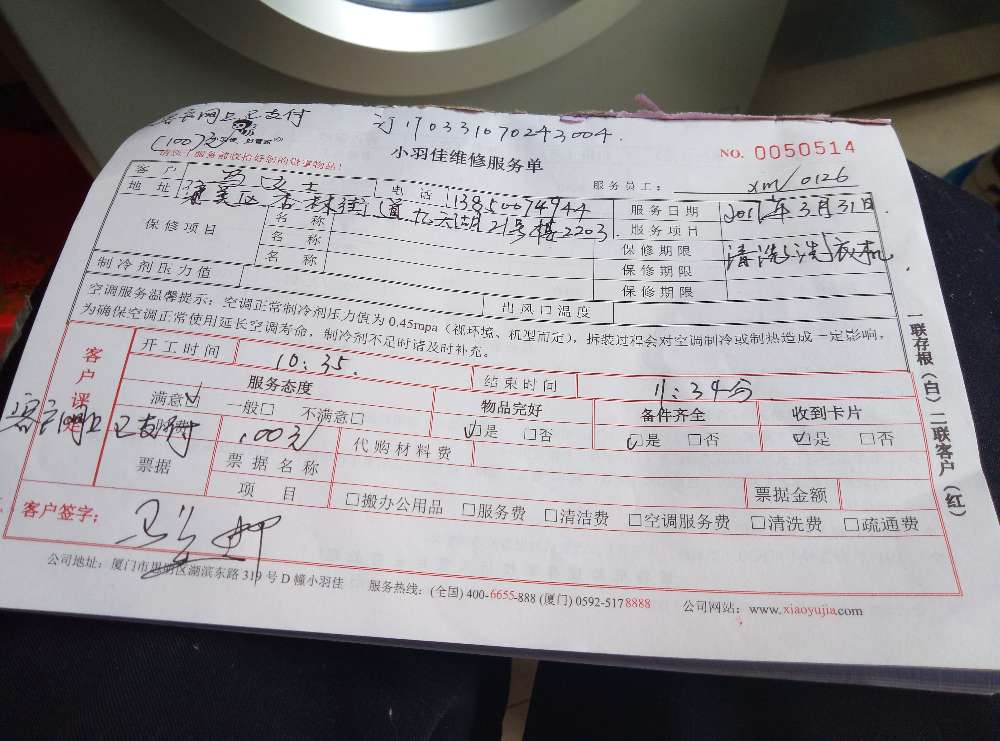 客户网上已支付 订190331070243004.
(100)元
小羽佳维修服务单 NO. 0050514
服务员工: xm/0126
客户 电话 13850074944 服务日期 3月31日
地址 集美区杏林街道 21号楼2203 服务项目 清洗洗衣机
保修项目 名称 保修期限
名称 保修期限
名称 保修期限
制冷剂压力值 出风口温度
空调服务温馨提示:空调正常制冷剂压力值为0.45mpa(视环境、机型而定),拆装过程会对空调制冷或制热造成一定影响,
为确保空调正常使用延长空调寿命,制冷剂不足时请及时补充。
客户评定
开工时间 10:35. 结束时间 11:34分
服务态度 物品完好 备件齐全 收到卡片
满意☑ 一般□ 不满意□ ☑是 □否 ☑是 □否 ☑是 □否
客户网上已支付 100元 代购材料费
票据 票据名称 票据金额
项目 □搬办公用品 □服务费 □清洁费 □空调服务费 □清洗费 □疏通费
客户签字:
公司地址:厦门市思明区湖滨东路319号D幢小羽佳 服务热线:(全国)400-6655-888 (厦门)0592-5178888 公司网站:www.xiaoyujia.com
一联存根(白)二联客户(红)